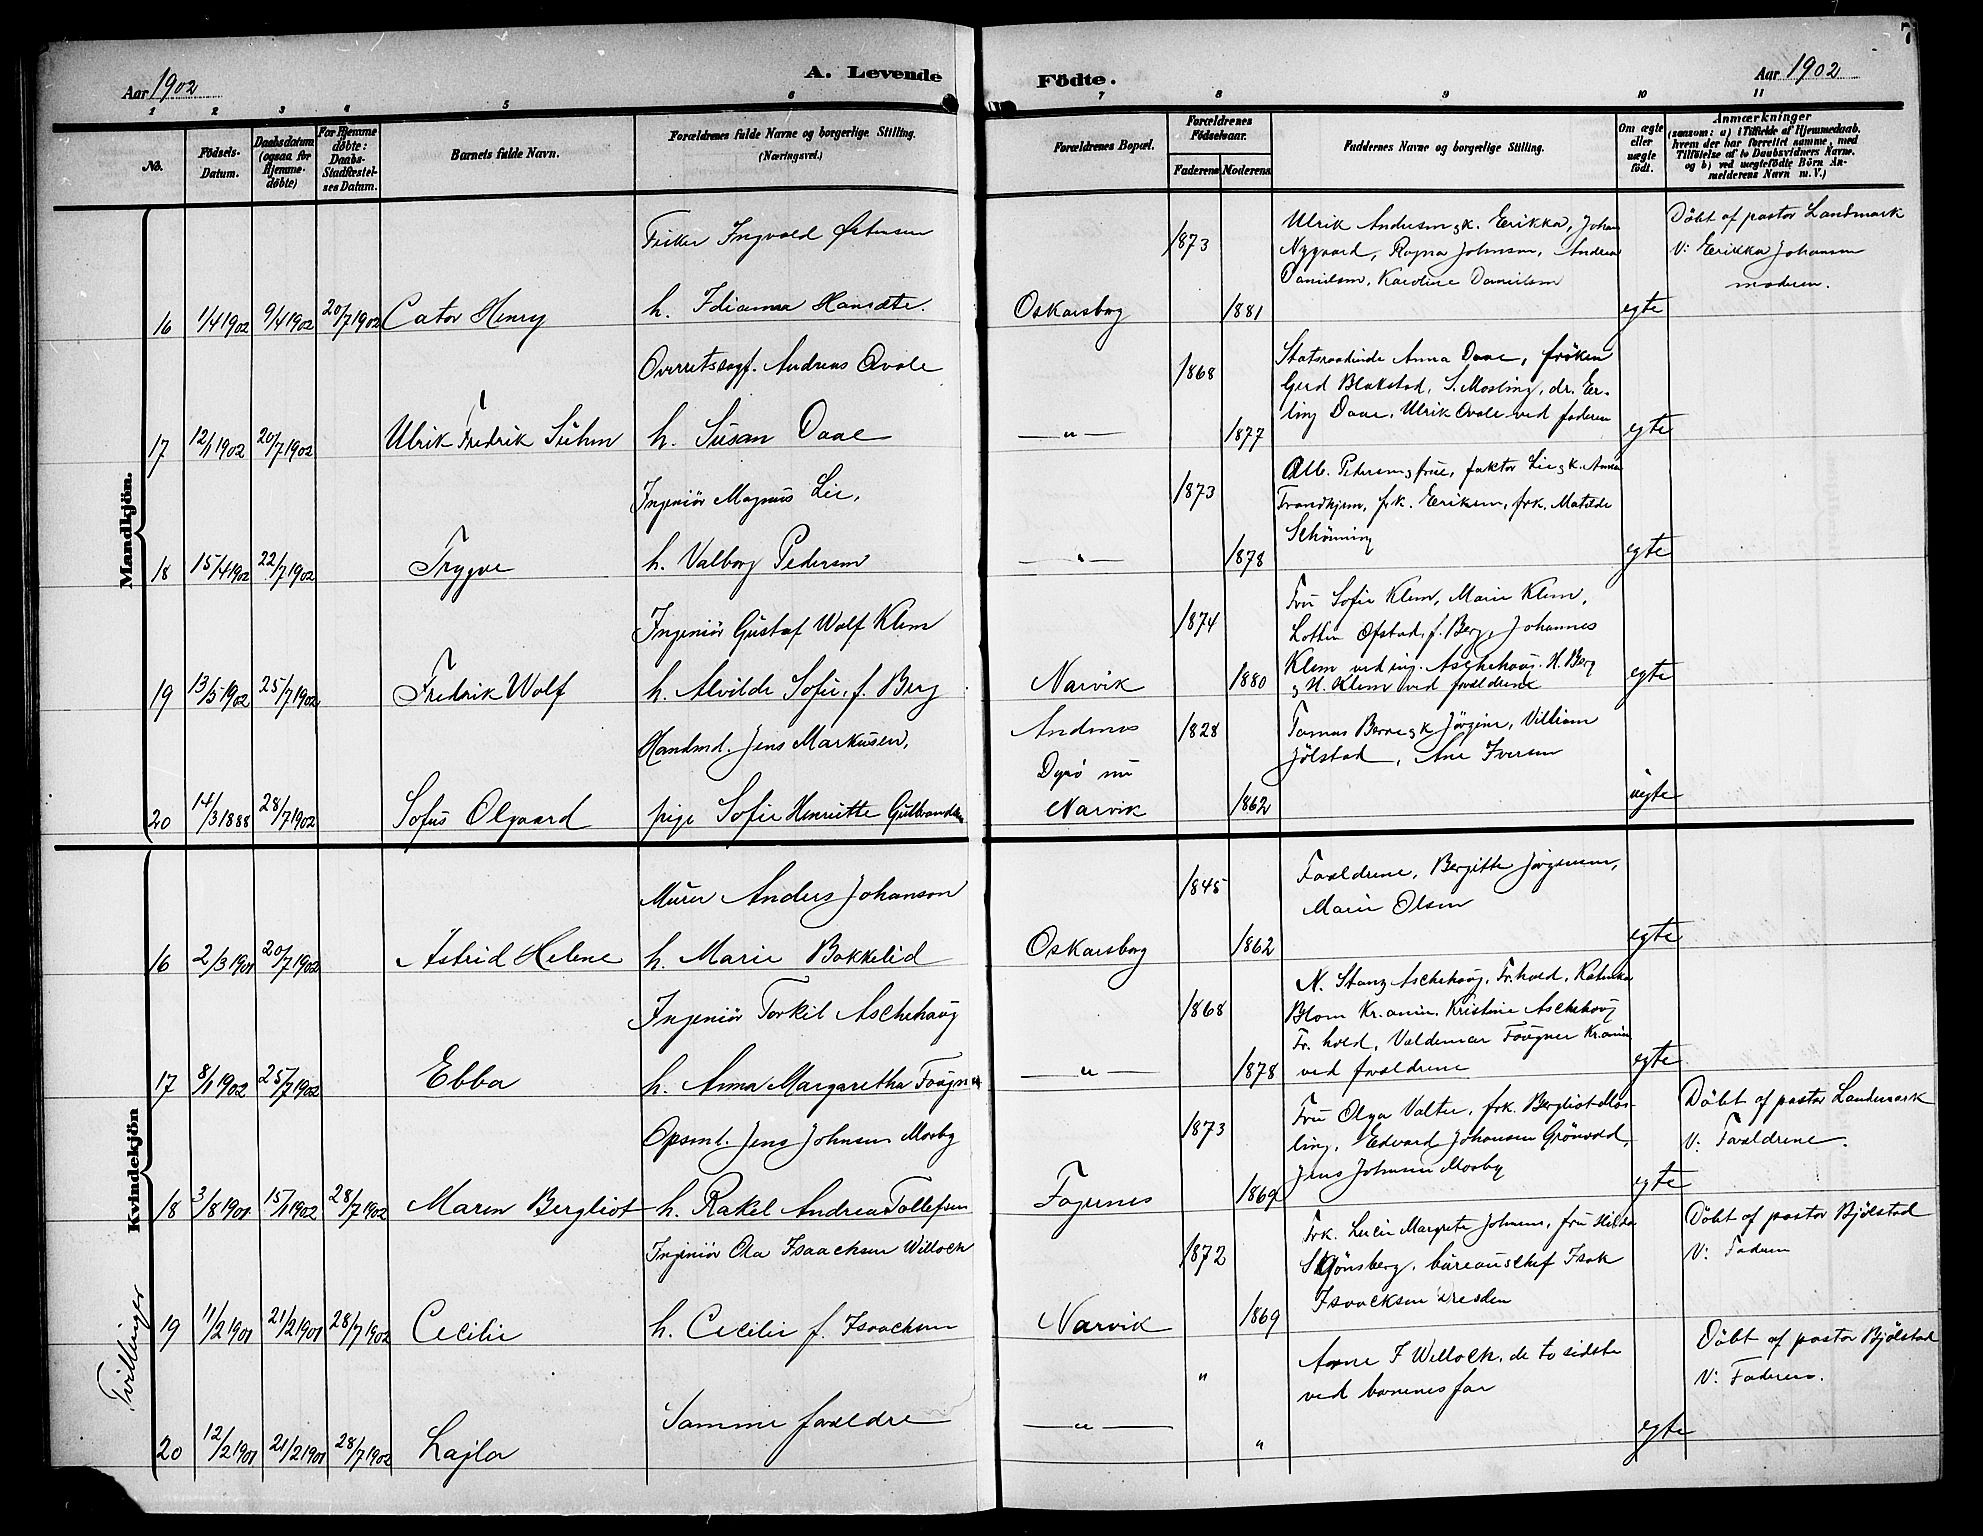 7
Aar 1902
A. Levende
Födte.
Aar 1902
1 2 3 4 5 6 7 8 9 10 11
No.
Födsels-
Datum.
Daabsdatum
(ogsaa for
Hjemme-
döbte)
For Hjemme
döbte:
Daabs-
Stadfæstel-
ses Datum.
Barnets fulde Navn.
Forældrenes fulde Navne og borgerlige Stilling.
(Næringsvei.)
Forældrenes Bopæl.
Forældrenes
Födselsaar.
Faderens
Moderens
Faddernes Navne og borgerlige Stilling.
Om ægte
eller
uægte
födt.
Anmærkninger
(saasom: a) i Tilfælde af Hjemmedaab.
hvem der har forrettet samme, med
Tilföielse af to Daabsvidners Navne.
og b) ved uægtefödte Börn An-
melderens Navn m. V.)
Mandkjön.
Fisker Ingvald Østensen
1873
Ulrik Andresen & k. Erikka, Johan
Nygaard, Ragna Johnsen, Andrea
Danielsen, Karoline Danielsen
Döbt af pastor Landmark
V: Erikka Johansen
moderen.
16 1/4 1902 9/4 1902 20/7 1902 Cator Henry
h. Idianna Hansdtr.
Oskarsborg 1881 egte
Overretssagf. Andreas Qvale
1868
Statsraadinde Anna Daae, fröken
Gerd Blakstad, S. Mosling, dr. Er-
ling Daae, Ulrik Qvale ved faderen
17 12/1 1902 20/7 1902 Ulrik Fredrik Sühm
h. Susan Daae
— " — 1877 egte
Ingeniör Magnus Lie,
1873
Alb. Pedersen & frue, faktor Lie & k. Anna
Trondhjem, frk. Eriksen, frk. Matilde
Schönning
18 15/4 1902 22/7 1902 Trygve
h. Valborg Pedersen
— " — 1878 egte
Ingeniör Gustaf Wolf Klem
1874
Fru Sofie Klem, Marie Klem,
Lottin Ofstad, f. Berg, Johannes
Klem ved ing. Aschehaug. H. Berg
& H. Klem ved forældrene
19 13/5 1902 25/7 1902 Fredrik Wolf
h. Alvilde Sofie, f. Berg
Narvik 1880 egte
Handmd. Jens Markusen,
Andenes
1828
Tomas Berre & k Jörgine, Villiam
Jölstad, Ane Iversen
Dyrö nu
20 14/3 1888 28/7 1902 Sofus Olgaard
pige Sofie Henriette Gulbrandsen
Narvik 1862 uegte
Kvindekjön
Murer Anders Johanson
1845
Forældrene, Bergitte Jörgensen,
Marie Olsen
16 2/3 1901 20/7 1902 Astrid Helene
h. Marie Bakkelid
Oskarsborg 1862 egte
Ingeniör Torkil Aschehaug
1868
N. Stang Aschehaug, Fr.hald, Katinka
Blom Kr.ania, Kristine Aschehaug
Fr. hald, Valdemar Fougner Kr.ania
ved forældrene
17 8/1 1902 25/7 1902 Ebba
h. Anna Margaretha Fougner
— " — 1878 egte
Opsmd. Jens Johnsen Mosby
1873
Fru Olga Valter, frk. Bergliot Mos-
ling, Edvard Johansen Grönvold,
Jens Johnsen Mosby
Döbt af pastor Landmark
V: Forældrene.
18 3/8 1901 15/1 1902 28/7 1902 Maren Bergliot
h. Rakel Andrea Tollefsen
Fagernes 1869 egte
Ingeniör Ola Isaachsen Willoch
1872
Frk. Lucie Margrete Johnsen, fru Hilda
Skjönsberg, büreauschef Isak
Isaacksen Dresden
Döbt af pastor Bjölstad
V: Faderen
Tvillinger
19 11/2 1901 21/2 1901 28/7 1902 Cecilie
h. Cecilie f. Isaachsen
Narvik 1869
"
Arne F Willoch, de to sidste
ved barnenes far
Döbt af pastor Bjölstad
V: Faderen.
Samme forældre
20 12/2 1901 21/2 1901 28/7 1902 Lajla
— " — " egte